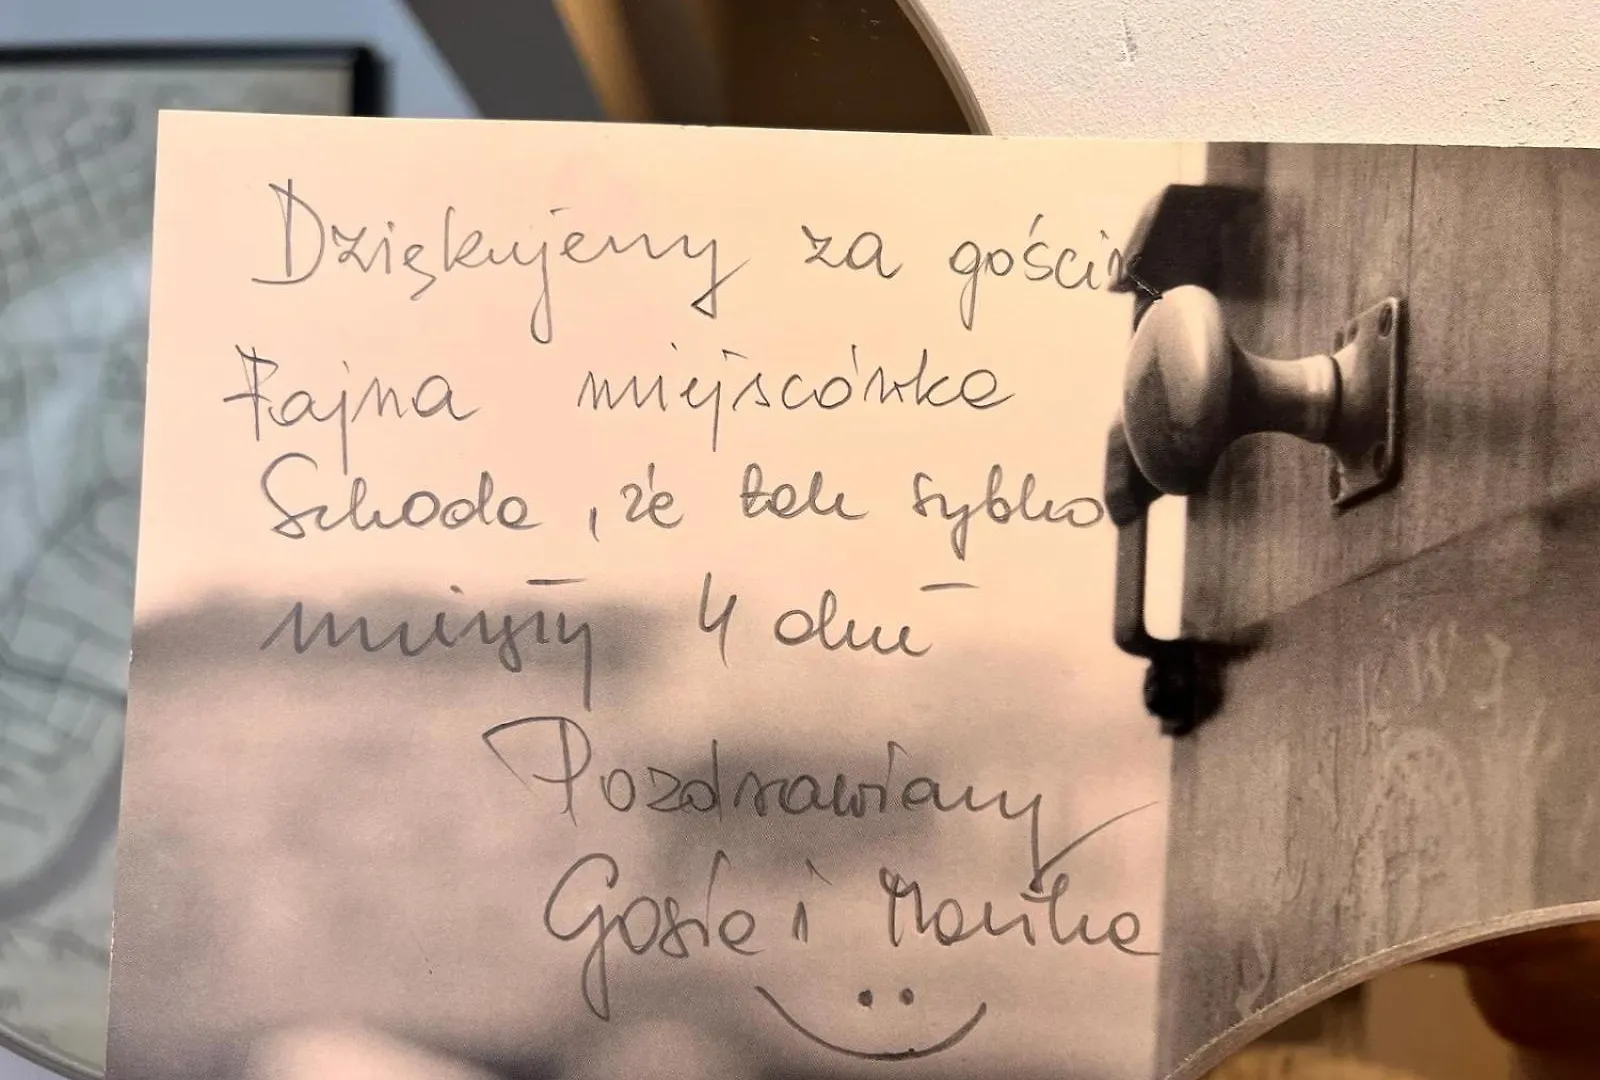 Dziękujemy za gościn
Fajna miejscówka
Szkoda, że tak szybko
minęły 4 dni
Pozdrawiamy
Gosia i Monika